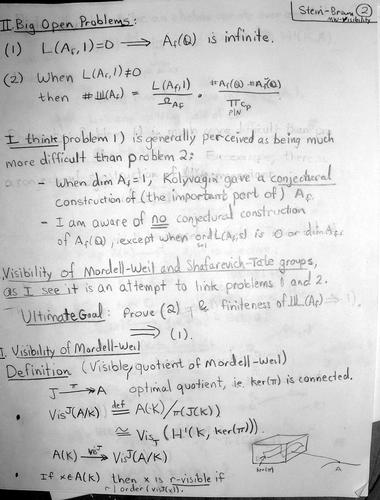 Stein-Brown (2)
MW-Visibility
II. Big Open Problems:
(1) L(A_f, 1) = 0 ⟹ A_f(Q) is infinite.
(2) When L(A_f, 1) ≠ 0
then #Ш(A_f) = L(A_f,1) / Ω_{A_f} · #A_f(Q) · #A_f^∨(Q) / ∏_{p|N} c_p
I think problem 1) is generally perceived as being much
more difficult than problem 2:
- When dim A_f = 1, Kolyvagin gave a conjectural
construction of (the important part of) A_f.
- I am aware of no conjectural construction
of A_f(Q), except when ord_{s=1} L(A_f, s) is 0 or dim A_f
Visibility of Mordell-Weil and Shafarevich-Tate groups,
as I see it is an attempt to link problems 1 and 2.
Ultimate Goal: Prove (2) & finiteness of Ш(A_f)
⟹ (1).
I. Visibility of Mordell-Weil
Definition (Visible quotient of Mordell-Weil)
J →^π A optimal quotient, i.e. ker(π) is connected.
• Vis^J(A/K) =^{def} A(K)/π(J(K))
≅ Vis_J(H^1(K, ker(π))).
A(K) → Vis^J(A/K)
• If x∈A(K) then x is r-visible if
r | order(vis^J(x)).
ker(π)
A